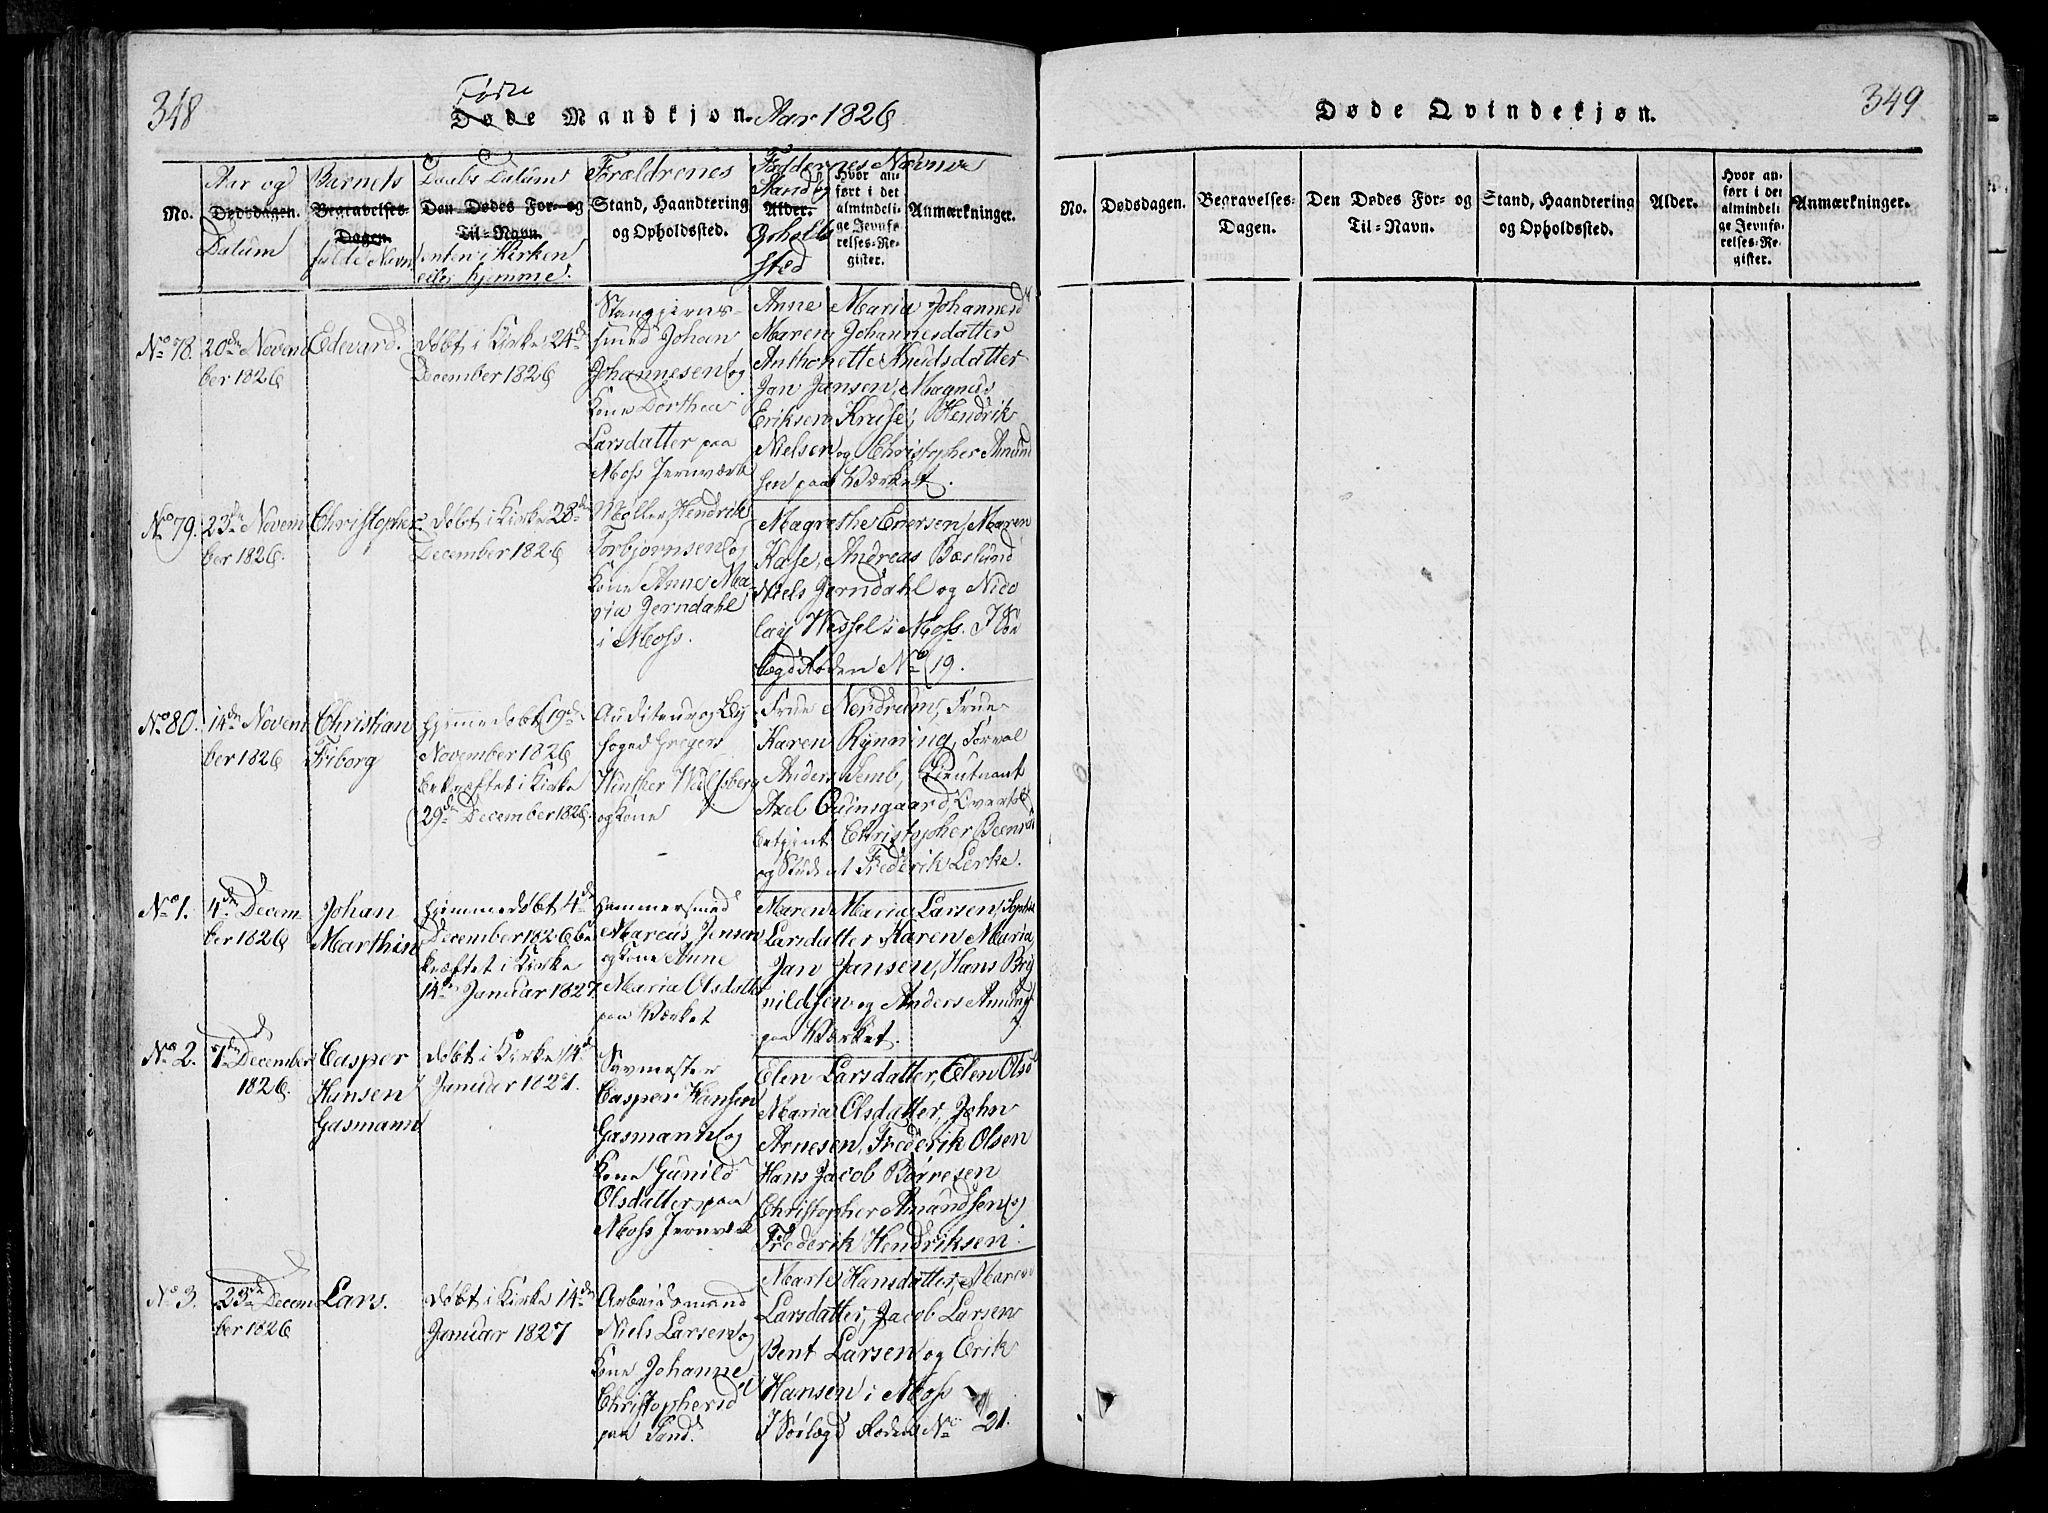 348
Føde
Døde Mandkjøn. Aar 1826.
No.
Aar og
Dødsdagen.
Datum
Barnets
Begravelses-
Dagen.
fulde Navn
Daabs Datum
Den Dødes For- og
Til-Navn.
enten i Kirken
eller hjemme.
Forældrenes
Stand, Haandtering
og Opholdssted.
Faddernes Navne
Stand og
Alder.
Opholds
sted
Hvor an-
ført i det
almindeli-
ge Jevnfø-
relses-Re-
gister.
Anmærkninger.
No 78.
20de Novem
ber 1826
Edevard.
døbt i Kirke 24de
December 1826
Stangjerns-
smed Johan
Johannesen og
Kone Dorthea
Larsdatter paa
Moss Jernværk
Anne Maria Johannesd
Maren Johannesdatter
Anthonette Knudsdatter
Jan Jansen, Magnus
Eriksen Kruse, Hendrik
Nielsen og Christopher Amund
sen paa Værket.
No 79.
23de Novem
ber 1826.
Christopher
døbt i Kirke 28de
December 1826
Møller Hendrik
Torbjørnsen og
Kone Anne Ma
ria Jerndahl
i Moss.
Magrethe Enersen, Maren
Kase, Andreas Bæslund
Niels Jerndahl og Nico
lay Wessel i Moss. I Sø
lægd Roden No 19.
No 80.
14de Novem
ber 1826
Christian
Friborg
hjemmedøbt 19de
November 1826
bekræftet i Kirke
29de December 1826.
Auditeur og By
foged Gregers
Winther Wulfsberg
og Kone
Frue Nordrum, Frue
Karen Rynning, Forval
Anders Semb, Lieutnant
Axel Gudnsgaard, Overtol
betjent Christopher
og Student Frederik Lerke.
No 1.
4de Decem-
ber 1826
Johan
Marthin
hjemmedøbt 4de
December 1826 be
kræftet i Kirke
14de Januar 1827.
Hammersmed
Marcus Jensen
og Kone Anne
Maria Olsdatter
paa Værket
Maren Maria Larsen, Sophie
Larsdatter, Karen Maria
Jan Jansen, Hans Bry
nildsen og Anders Amunds
paa Værket.
No 2.
7de December
1826.
Casper
Hansen
Gasmann
døbt i Kirke 14de
Januar 1827.
Savmester
Casper Hansen
Gasmann og
Kone Gunild
Olsdatter paa
Moss Jernværk
Elen Larsdatter, Elen Olsd
Maria Olsdatter, John
Arnesen, Frederik Olsen
Hans Jacob Børresen
Christopher Amundsen og
Frederik Hendriksen.
No 3.
23de Decem
ber 1826
Lars.
døbt i Kirke 14de
Januar 1827
Arbeidsmand
Niels Larsen og
Kone Johanne
Christophersd
paa Sand.
Marte Hansdatter, Maren
Larsdatter, Jacob Larsen
Bent Larsen og Erik
Hansen i Moss
I Søelægd Roden No 21.
349
Døde Qvindekjøn.
No.
Dødsdagen.
Begravelses-
Dagen.
Den Dødes For- og
Til-Navn.
Stand, Haandtering
og Opholdssted.
Alder.
Hvor an-
ført i det
almindeli-
ge Jevnfø-
relses-Re-
gister.
Anmærkninger.